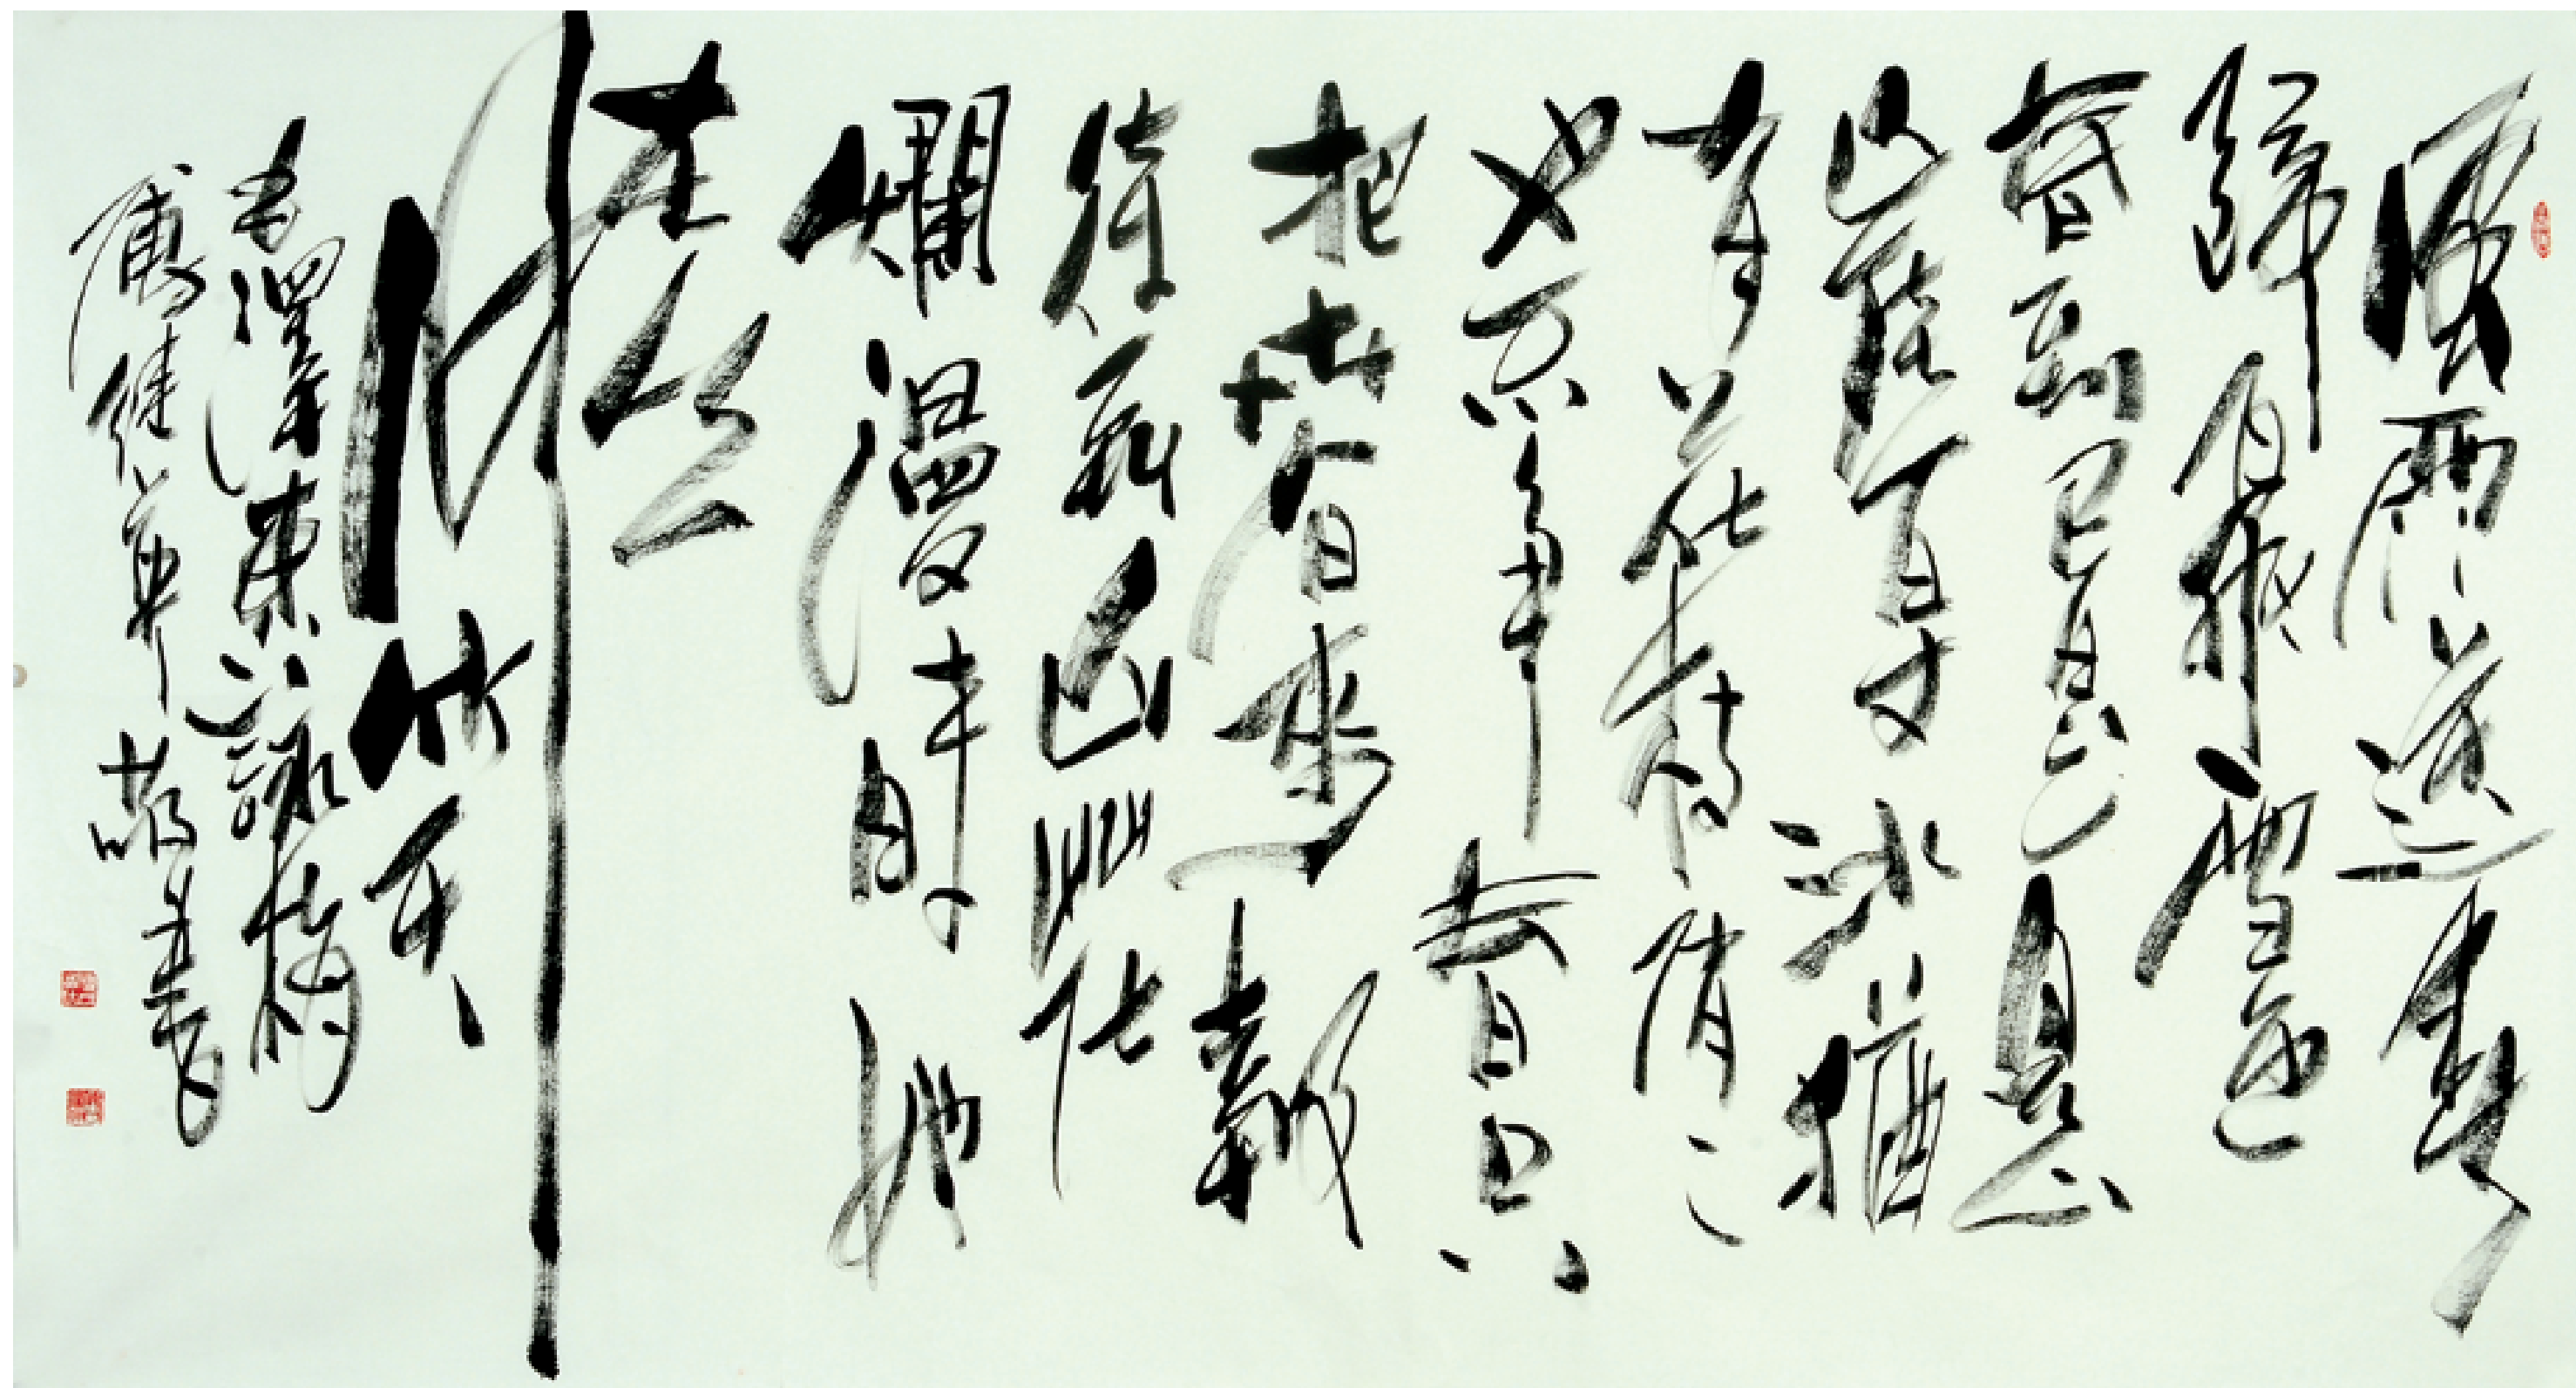 風雨送春
歸飛雪迎
春到已是懸
崖百丈冰猶
有花枝俏俏
也不爭春只
把春來報
待到山花
爛漫時她
在叢
中笑
毛澤東詠梅
傅继英敬書